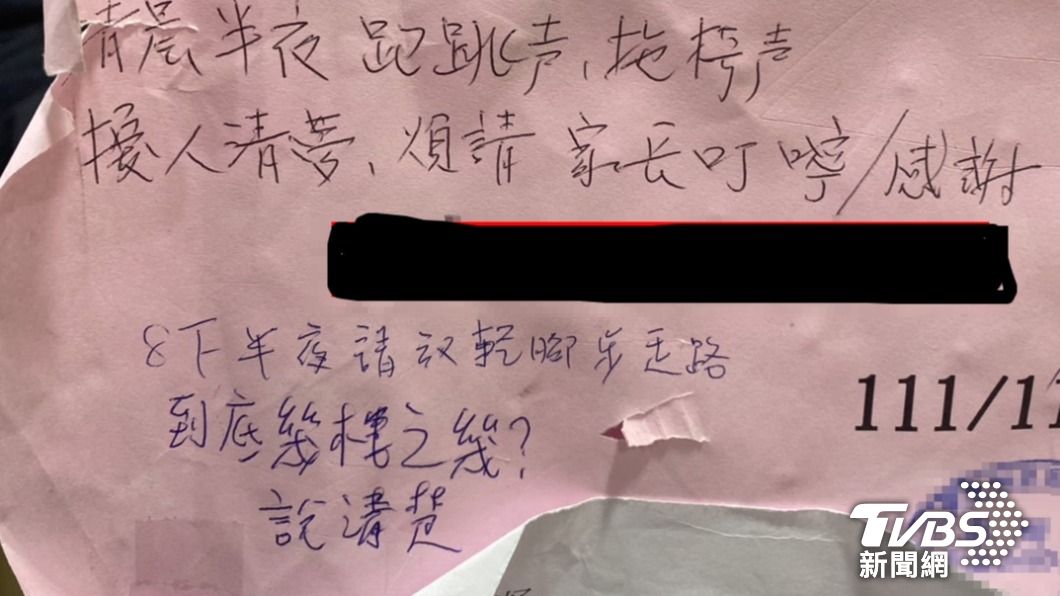 清晨半夜跑跳声、拖椅声
擾人清夢、煩請家长叮嚀/感謝
8下半夜請放輕腳步走路
到底幾樓之幾?
說清楚
111/1
TVBS
新聞網